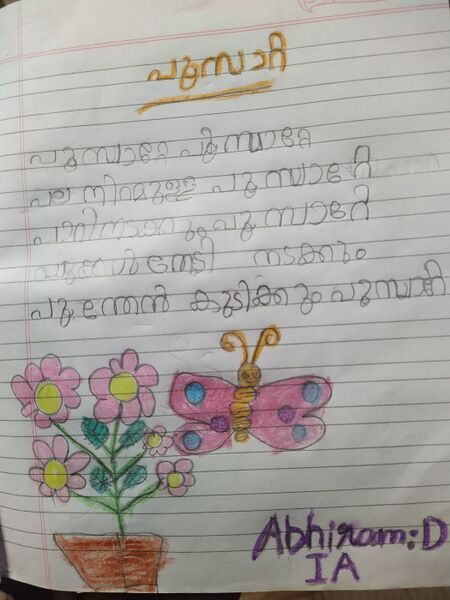 പൂമ്പാറ്റ
പൂമ്പാറ്റേ പൂമ്പാറ്റേ
പല നിറമുള്ള പൂമ്പാറ്റേ
പാറിനടക്കും പൂമ്പാറ്റേ
പൂക്കൾ തേടി നടക്കും
പൂന്തേൻ കുടിക്കും പൂമ്പാറ്റേ
Abhiram:D
IA